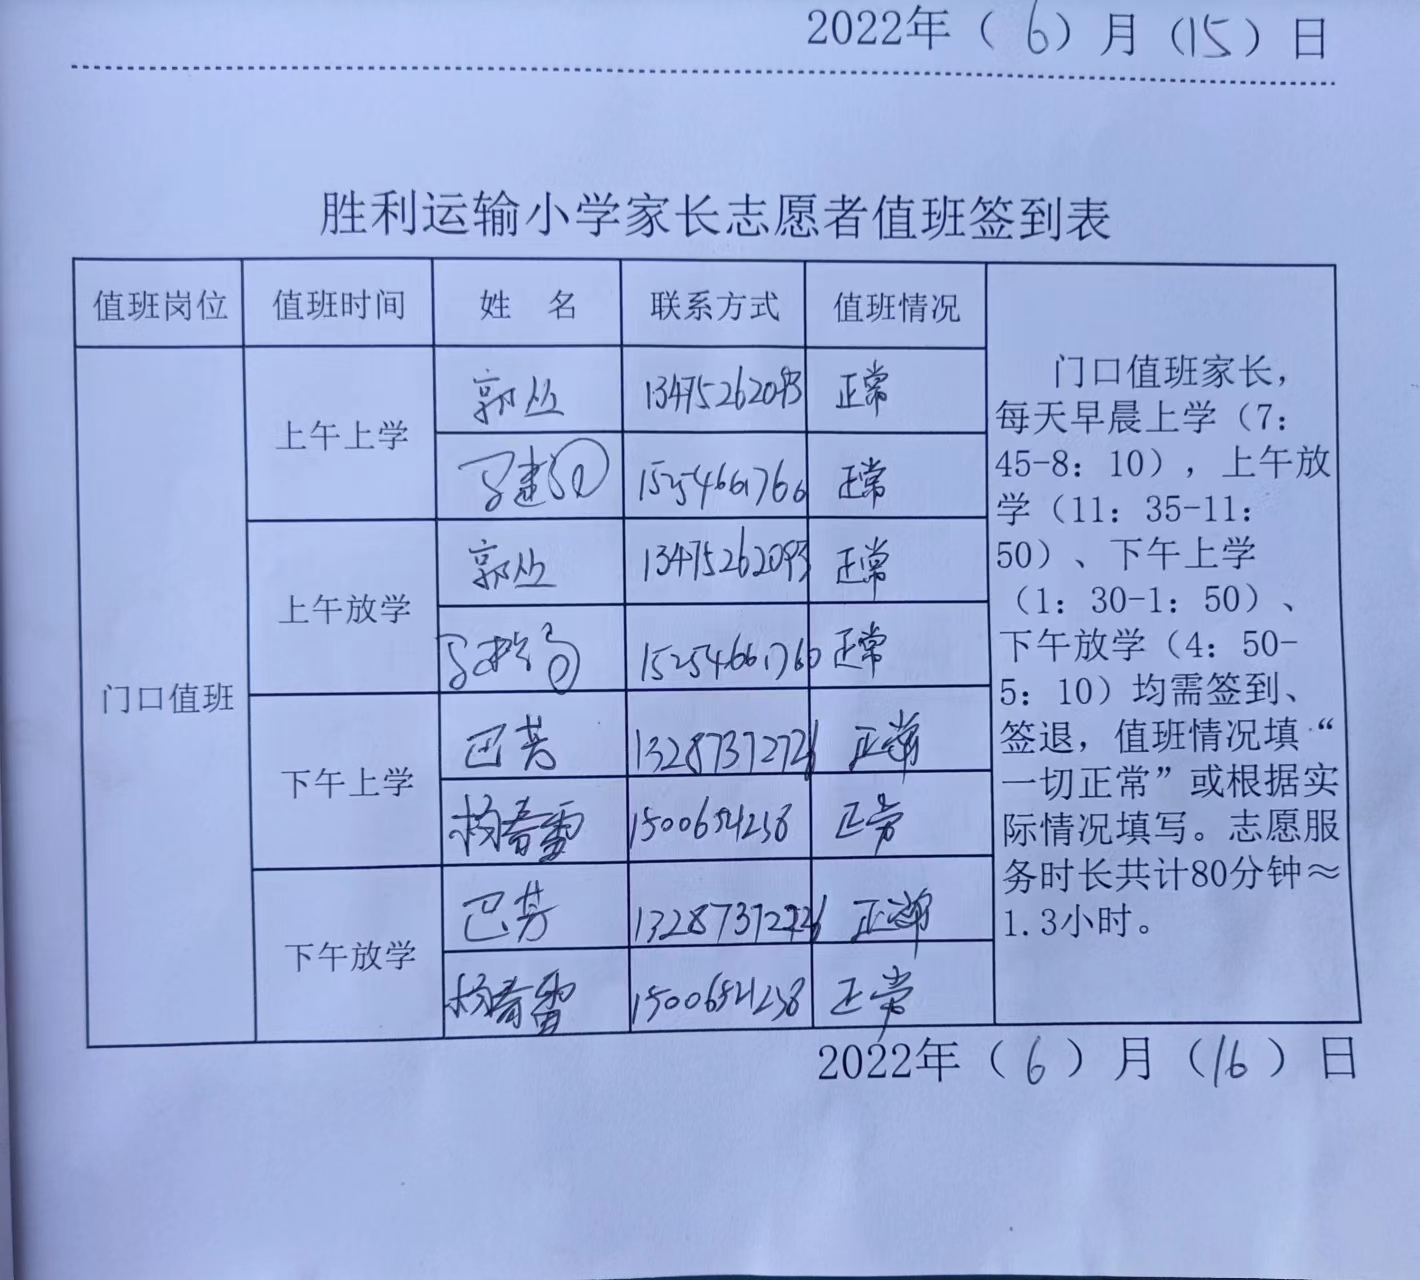 2022年（6）月（15）日
胜利运输小学家长志愿者值班签到表
值班岗位 值班时间 姓 名 联系方式 值班情况
门口值班
上午上学
郭丛 13475262093 正常
15254661766 正常
上午放学
郭丛 13475262093 正常
15254661766 正常
下午上学
巴芳 13287372726 正常
杨春雷 1500654238 正常
下午放学
巴芳 13287372726 正常
杨春雷 正常
门口值班家长，
每天早晨上学（7：
45-8：10），上午放
学（11：35-11：
50）、下午上学
（1：30-1：50）、
下午放学（4：50-
5：10）均需签到、
签退，值班情况填“
一切正常”或根据实
际情况填写。志愿服
务时长共计80分钟≈
1.3小时。
2022年（6）月（16）日